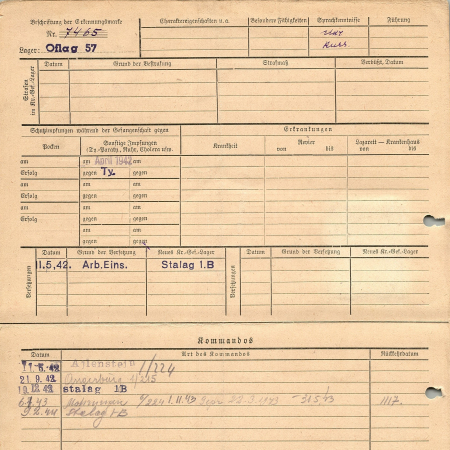 Beschriftung der Erkennungsmarke
Nr. 7465
Lager: Oflag 57
Charaktereigenschaften u. a.
Besondere Fähigkeiten
Sprachkenntnisse
Führung
Strafen im Kr.-Gef.-Lager
Datum
Grund der Bestrafung
Strafmaß
Verbüßt, Datum
Schutzimpfungen während der Gefangenschaft gegen
Erkrankungen
Pocken
Sonstige Impfungen
(Ty.-Paraty., Ruhr, Cholera usw.)
Krankheit
Revier
von bis
Lazarett — Krankenhaus
von bis
am am April 1942 am
Erfolg gegen Ty. gegen
am am am
Erfolg gegen gegen
am am am
Erfolg gegen gegen
am am
gegen gegen
am am
gegen gegen
Versetzungen
Datum Grund der Versetzung Neues Kr.-Gef.-Lager
11.5.42. Arb.Eins. Stalag 1.B
Versetzungen
Datum Grund der Versetzung Neues Kr.-Gef.-Lager
Kommandos
Datum Art des Kommandos Rückkehrdatum
11.5.42 Allenstein 1/224
21.9.42
42 stalag 1B
43 1.11.43
9.2.44 Stalag 1B